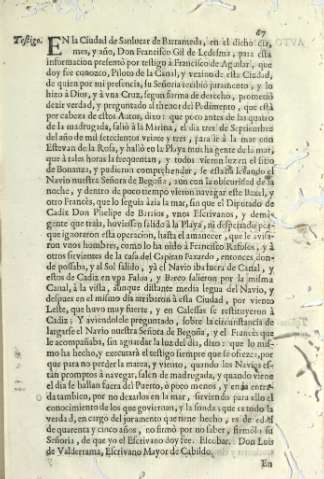 67
Testigo.
EN la Ciudad de Sanlucar de Barrameda, en el dicho dia,
mes, y año, Don Francisco Gil de Ledesma, para esta
informacion presentò por testigo à Francisco de Aguilar, que
doy fee conozco, Piloto de la Canal, y vezino de esta Ciudad,
de quien por mi presencia, su Señoria recibiò juramento, y lo
hizo à Dios, y à vna Cruz, segun forma de derecho, prometiò
dezir verdad, y preguntado al thenor del Pedimento, que està
por cabeza de estos Autos, dixo: que poco antes de las quatro
de la madrugada, saliò à la Marina, el dia tres de Septiembre
del año de mil setecientos veinte y tres, para ir à la mar con
Estevan de la Rosa, y hallò en la Playa mucha gente de la mar,
que à tales horas la frequentan, y todos vieron luzes en el sitio
de Bonanza, y pudieron comprehender, se estaba levando el
Navio nuestra Señora de Begoña, aun con la obscuridad de la
noche, y dentro de poco tiempo vieron navegar este Baxel, y
otro Francès, que lo seguia àzia la mar, sin que el Diputado de
Cadiz Don Phelipe de Barrios, vnos Escrivanos, y demàs
gente que traìa, huviessen salido à la Playa, ni despertado por-
que ignoraron esta operacion, hasta el amanecer, que le avisa-
ron vnos hombres, como lo ha oido à Francisco Rasoles, y à
otros sirvientes de la casa del Capitan Pazardo, entonces don-
de possaba, y al Sol salido, yà el Navio iba fuera de Canal, y
estos de Cadiz en vna Falua, y Barco salieron por la misma
Canal, à la vista, aunque distante media legua del Navio, y
despues en el mismo dia arribaron à esta Ciudad, por viento
Leste, que huvo muy fuerte, y en Calessas se restituyeron à
Cadiz: Y aviendole preguntado, sobre la circunstancia de
largarse el Navio nuestra Señora de Begoña, y el Francès que
le acompañaba, sin aguardar la luz del dia, dixo: que lo mis-
mo ha hecho, y executarà el testigo siempre que se ofrezca, por
que para no perder la marea, y viento, quando los Navios es-
tàn promptos à navegar, salen de madrugada, y quando viene
el dia se hallan fuera del Puerto, ò poco menos, y en la entra-
da tambien, por no dexarlos en la mar, sirviendo para ello el
conocimiento de los que goviernan, y la sonda: que es todo la
verdad, en cargo del juramento que tiene hecho, es de edad
de quarenta y cinco años, no firmò por no saber, firmòlo su
Señoria, de que yo el Escrivano doy fee. Escobar. Don Luis
de Valderrama, Escrivano Mayor de Cabildo.
En